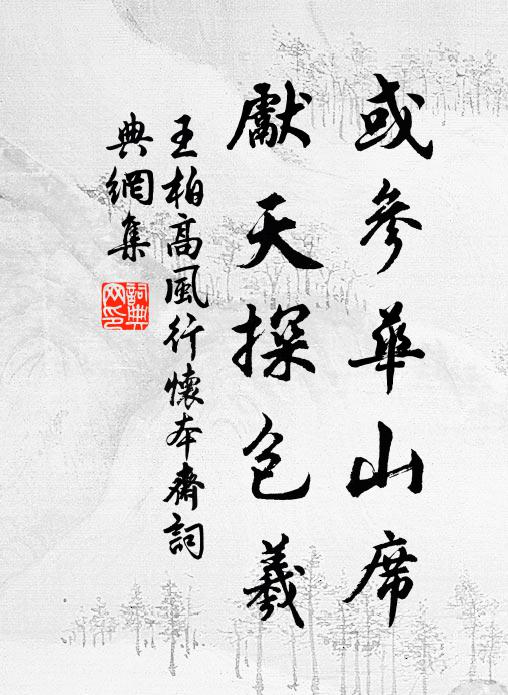 或參華山席
先天探包羲
王柏高風行懷本齋詞
典網集
詞典網印